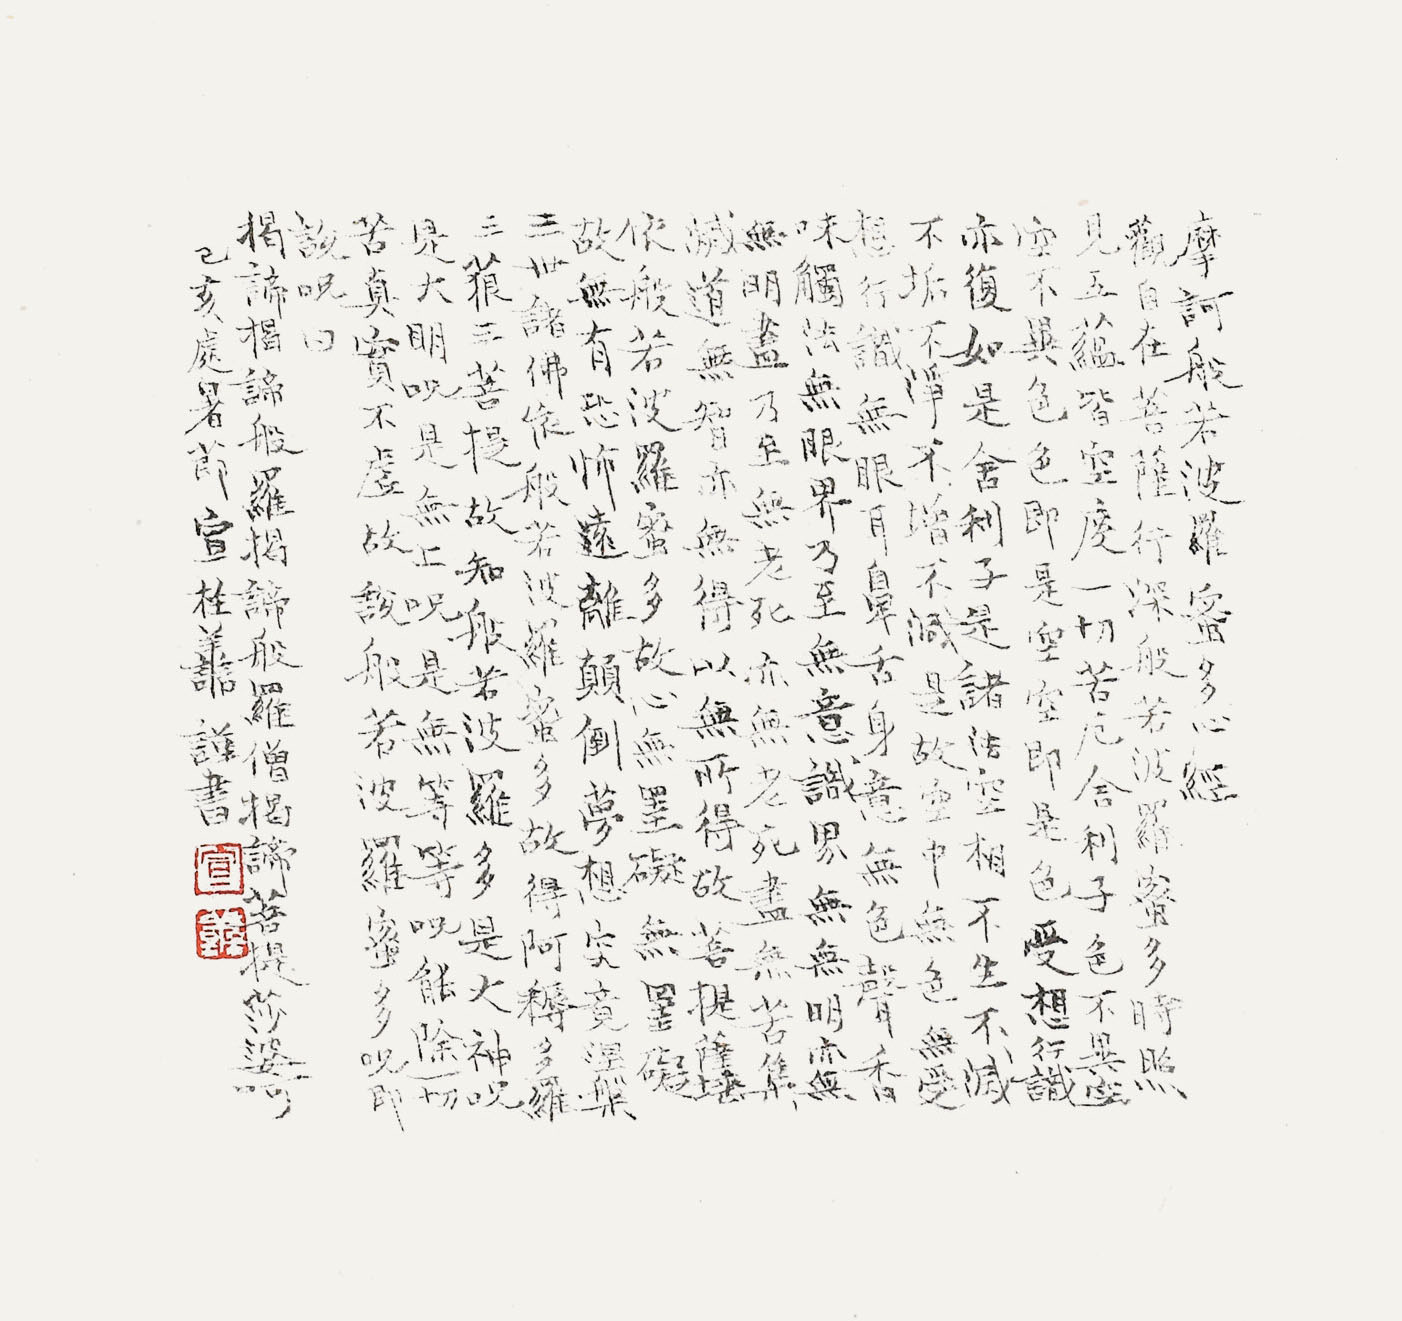 摩訶般若波羅蜜多心經
觀自在菩薩行深般若波羅蜜多時照
見五蘊皆空度一切苦厄舍利子色不異空
空不異色色即是空空即是色受想行識
亦復如是舍利子是諸法空相不生不滅
不垢不淨不增不減是故空中無色無受
想行識無眼耳鼻舌身意無色聲香
味觸法無眼界乃至無意識界無無明亦無
無明盡乃至無老死亦無老死盡無苦集
滅道無智亦無得以無所得故菩提薩埵
依般若波羅蜜多故心無罣礙無罣礙
故無有恐怖遠離顛倒夢想究竟涅槃
三世諸佛依般若波羅蜜多故得阿耨多羅
三藐三菩提故知般若波羅多是大神咒
是大明咒是無上咒是無等等咒能除一切
苦真實不虛故說般若波羅蜜多咒即
說咒曰
揭諦揭諦般羅揭諦般羅僧揭諦菩提莎婆呵
己亥處暑節宣柱善謹書
宣